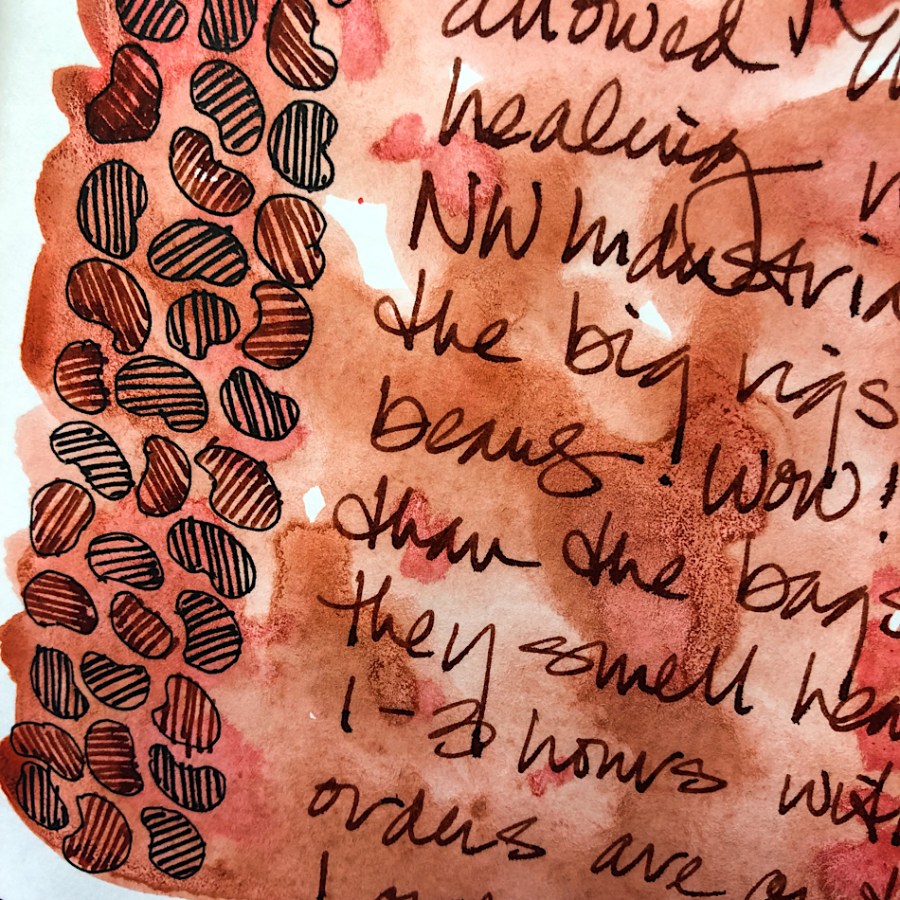 allowed
healing
NW Industria
the big rigs
beans! Wow!
than the bags
they smell hea
1-2 hours with
orders are